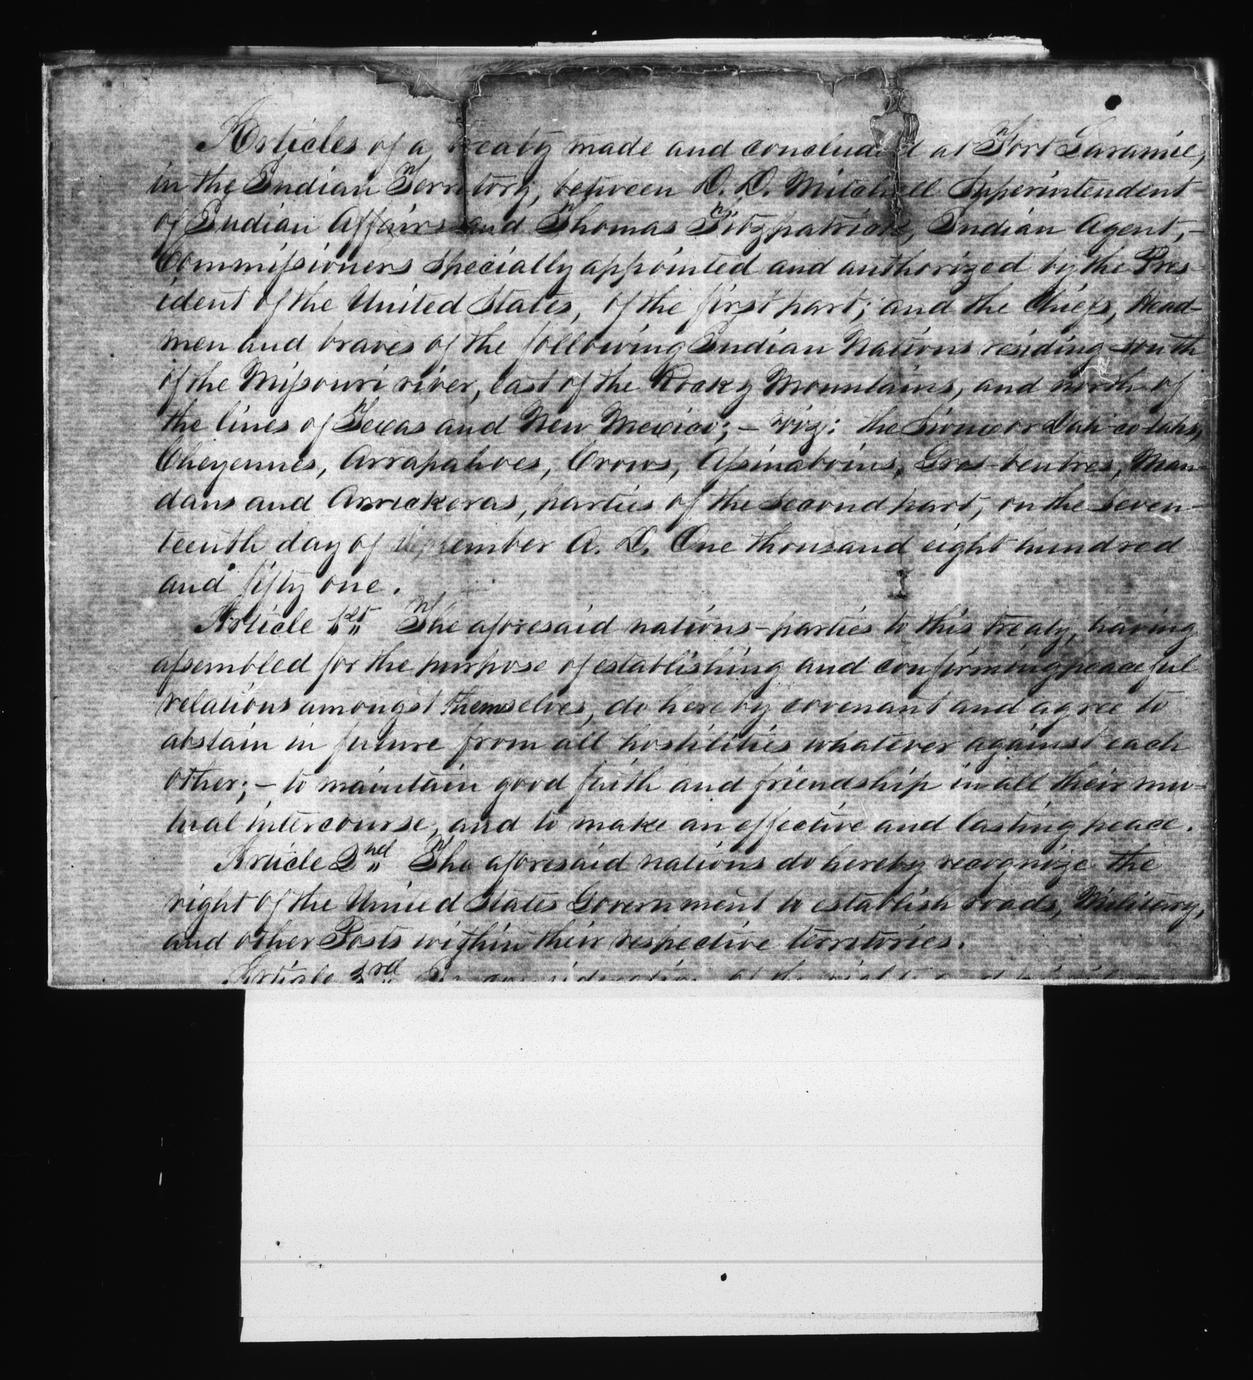 Articles of a treaty made and concluded at Fort Laramie,
in the Indian Territory, between D. D. Mitchell Superintendent
of Indian Affairs and Thomas Fitzpatrick, Indian Agent, –
Commissioners specially appointed and authorized by the Pres-
ident of the United States, of the first part; and the Chiefs, Head-
men and braves of the following Indian Nations residing south
of the Missouri river, east of the Rocky Mountains, and north of
the lines of Texas and New Mexico; – viz: the Sioux or Dah-co-tahs,
Cheyennes, Arrapahoes, Crows, Assinaboins, Gros-ventres, Man-
dans and Arrickeras, parties of the second part, on the seven-
teenth day of September A. D. One thousand eight hundred
and fifty one.
Article 1st The aforesaid nations – parties to this treaty, having
assembled for the purpose of establishing and confirming peaceful
relations amongst themselves, do hereby covenant and agree to
abstain in future from all hostilities whatever against each
other; – to maintain good faith and friendship in all their mu-
tual intercourse, and to make an effective and lasting peace.
Article 2nd The aforesaid nations do hereby recognize the
right of the United States Government to establish roads, Military,
and other Posts within their respective territories.
Article 3rd In consideration of the rights and